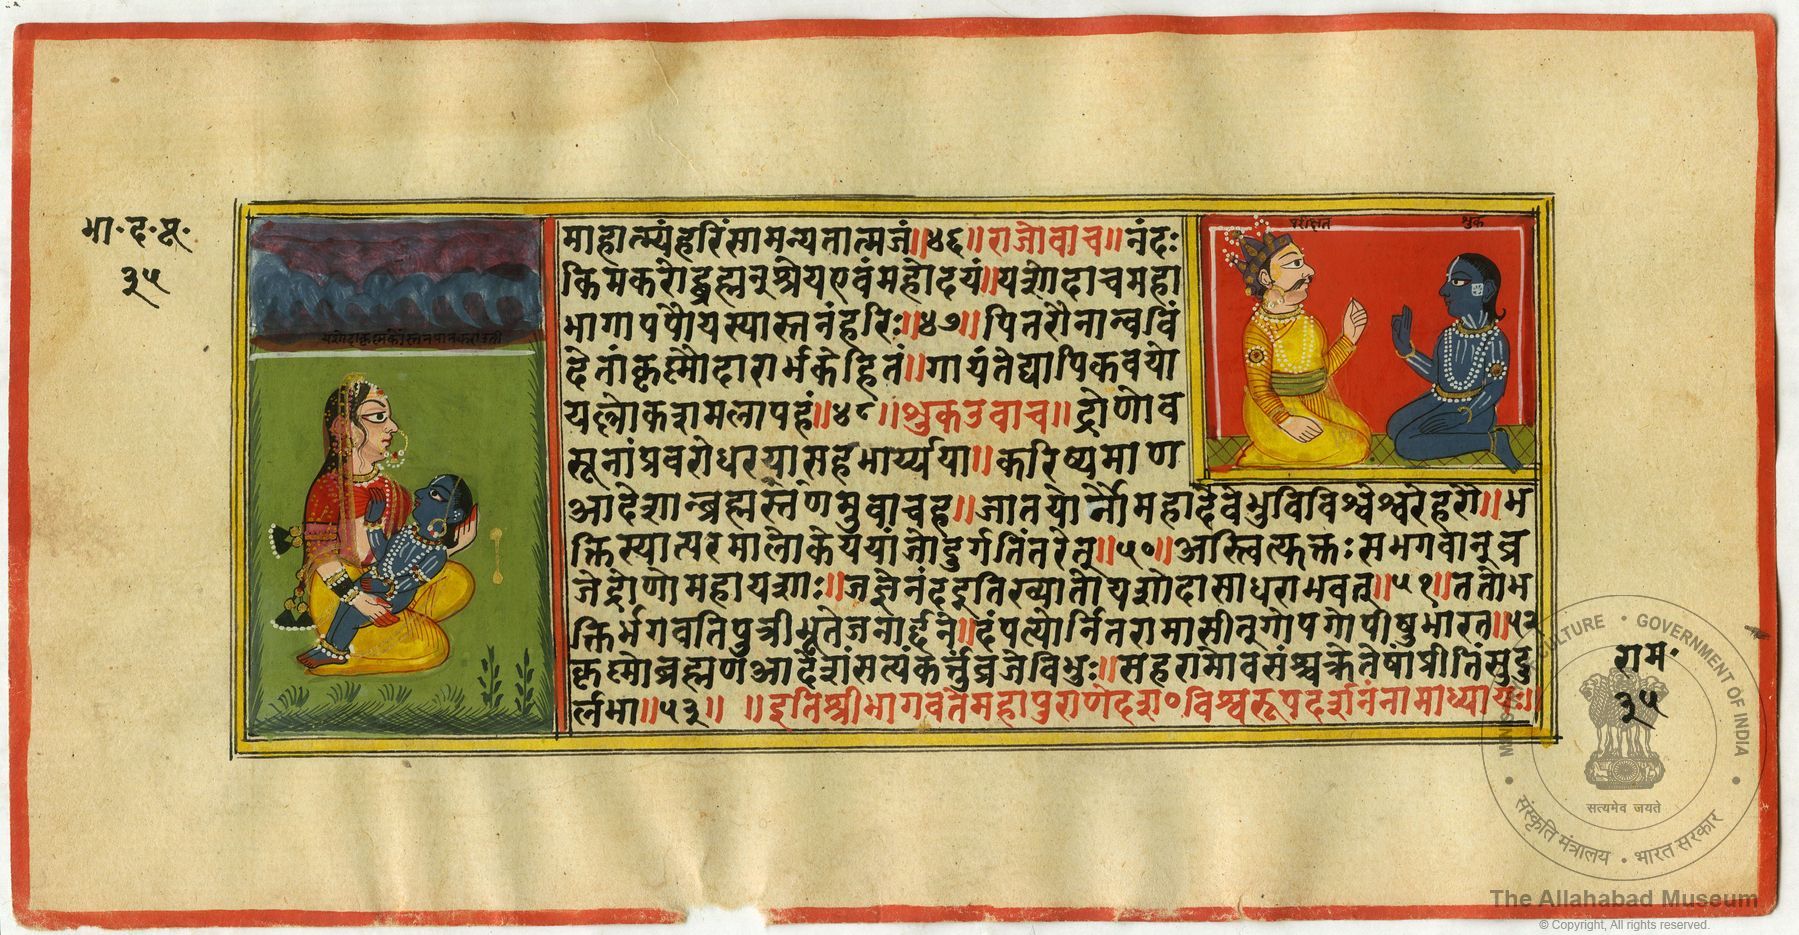 भा॰द॰पू॰
३५
यशोदाकृष्णकोंस्तनपानकरावती
परीक्षित
शुक
माहात्म्यंहरिंसामन्यतात्मजं॥४६॥राजोवाच॥नंदः
किमकरोद्ब्रह्मन्श्रेयएवंमहोदयं॥यशोदाचमहा
भागापपौयस्यास्तनंहरिः॥४७॥पितरौनान्वविं
देतांकृष्णोदारार्भकेहितं॥गायंतेद्यापिकवयो
यल्लोकशमलापहं॥४८॥शुकउवाच॥द्रोणोव
सूनांप्रवरोधरयासहभार्य्यया॥करिष्यमाण
आदेशान्ब्रह्मस्तंणमुवाचह॥जातयोर्नौमहादेवेभुविविश्वेश्वरेहरौ॥भ
क्तिस्यात्परमालोकेययांजोदुर्गतिंतरेत्॥५०॥अस्त्वित्फक्तःसभगवान्व्र
जेद्रोणोमहायशाः॥जज्ञेनंदइतिख्यातोयशोदासाधराभवत्॥५१॥ततोभ
क्तिर्भगवतिपुत्रीभूतेजनार्द्दने॥दंपत्योर्नितरामासीत्गोपगोपीषुभारत॥५२
कृष्णोब्रह्मणआदेशंसत्यंकर्त्तुंव्रजेविभुः॥सहरामोवसंश्चक्रेतेषांप्रीतिंसुदु
र्लभा॥५३॥ ॥इतिश्रीभागवतेमहापुराणेदश॰विश्वरूपदर्शनंनामाध्यायः॥
राम॰
३५
MINISTRY OF CULTURE • GOVERNMENT OF INDIA
सत्यमेव जयते
संस्कृति मंत्रालय • भारत सरकार
The Allahabad Museum
© Copyright, All rights reserved.